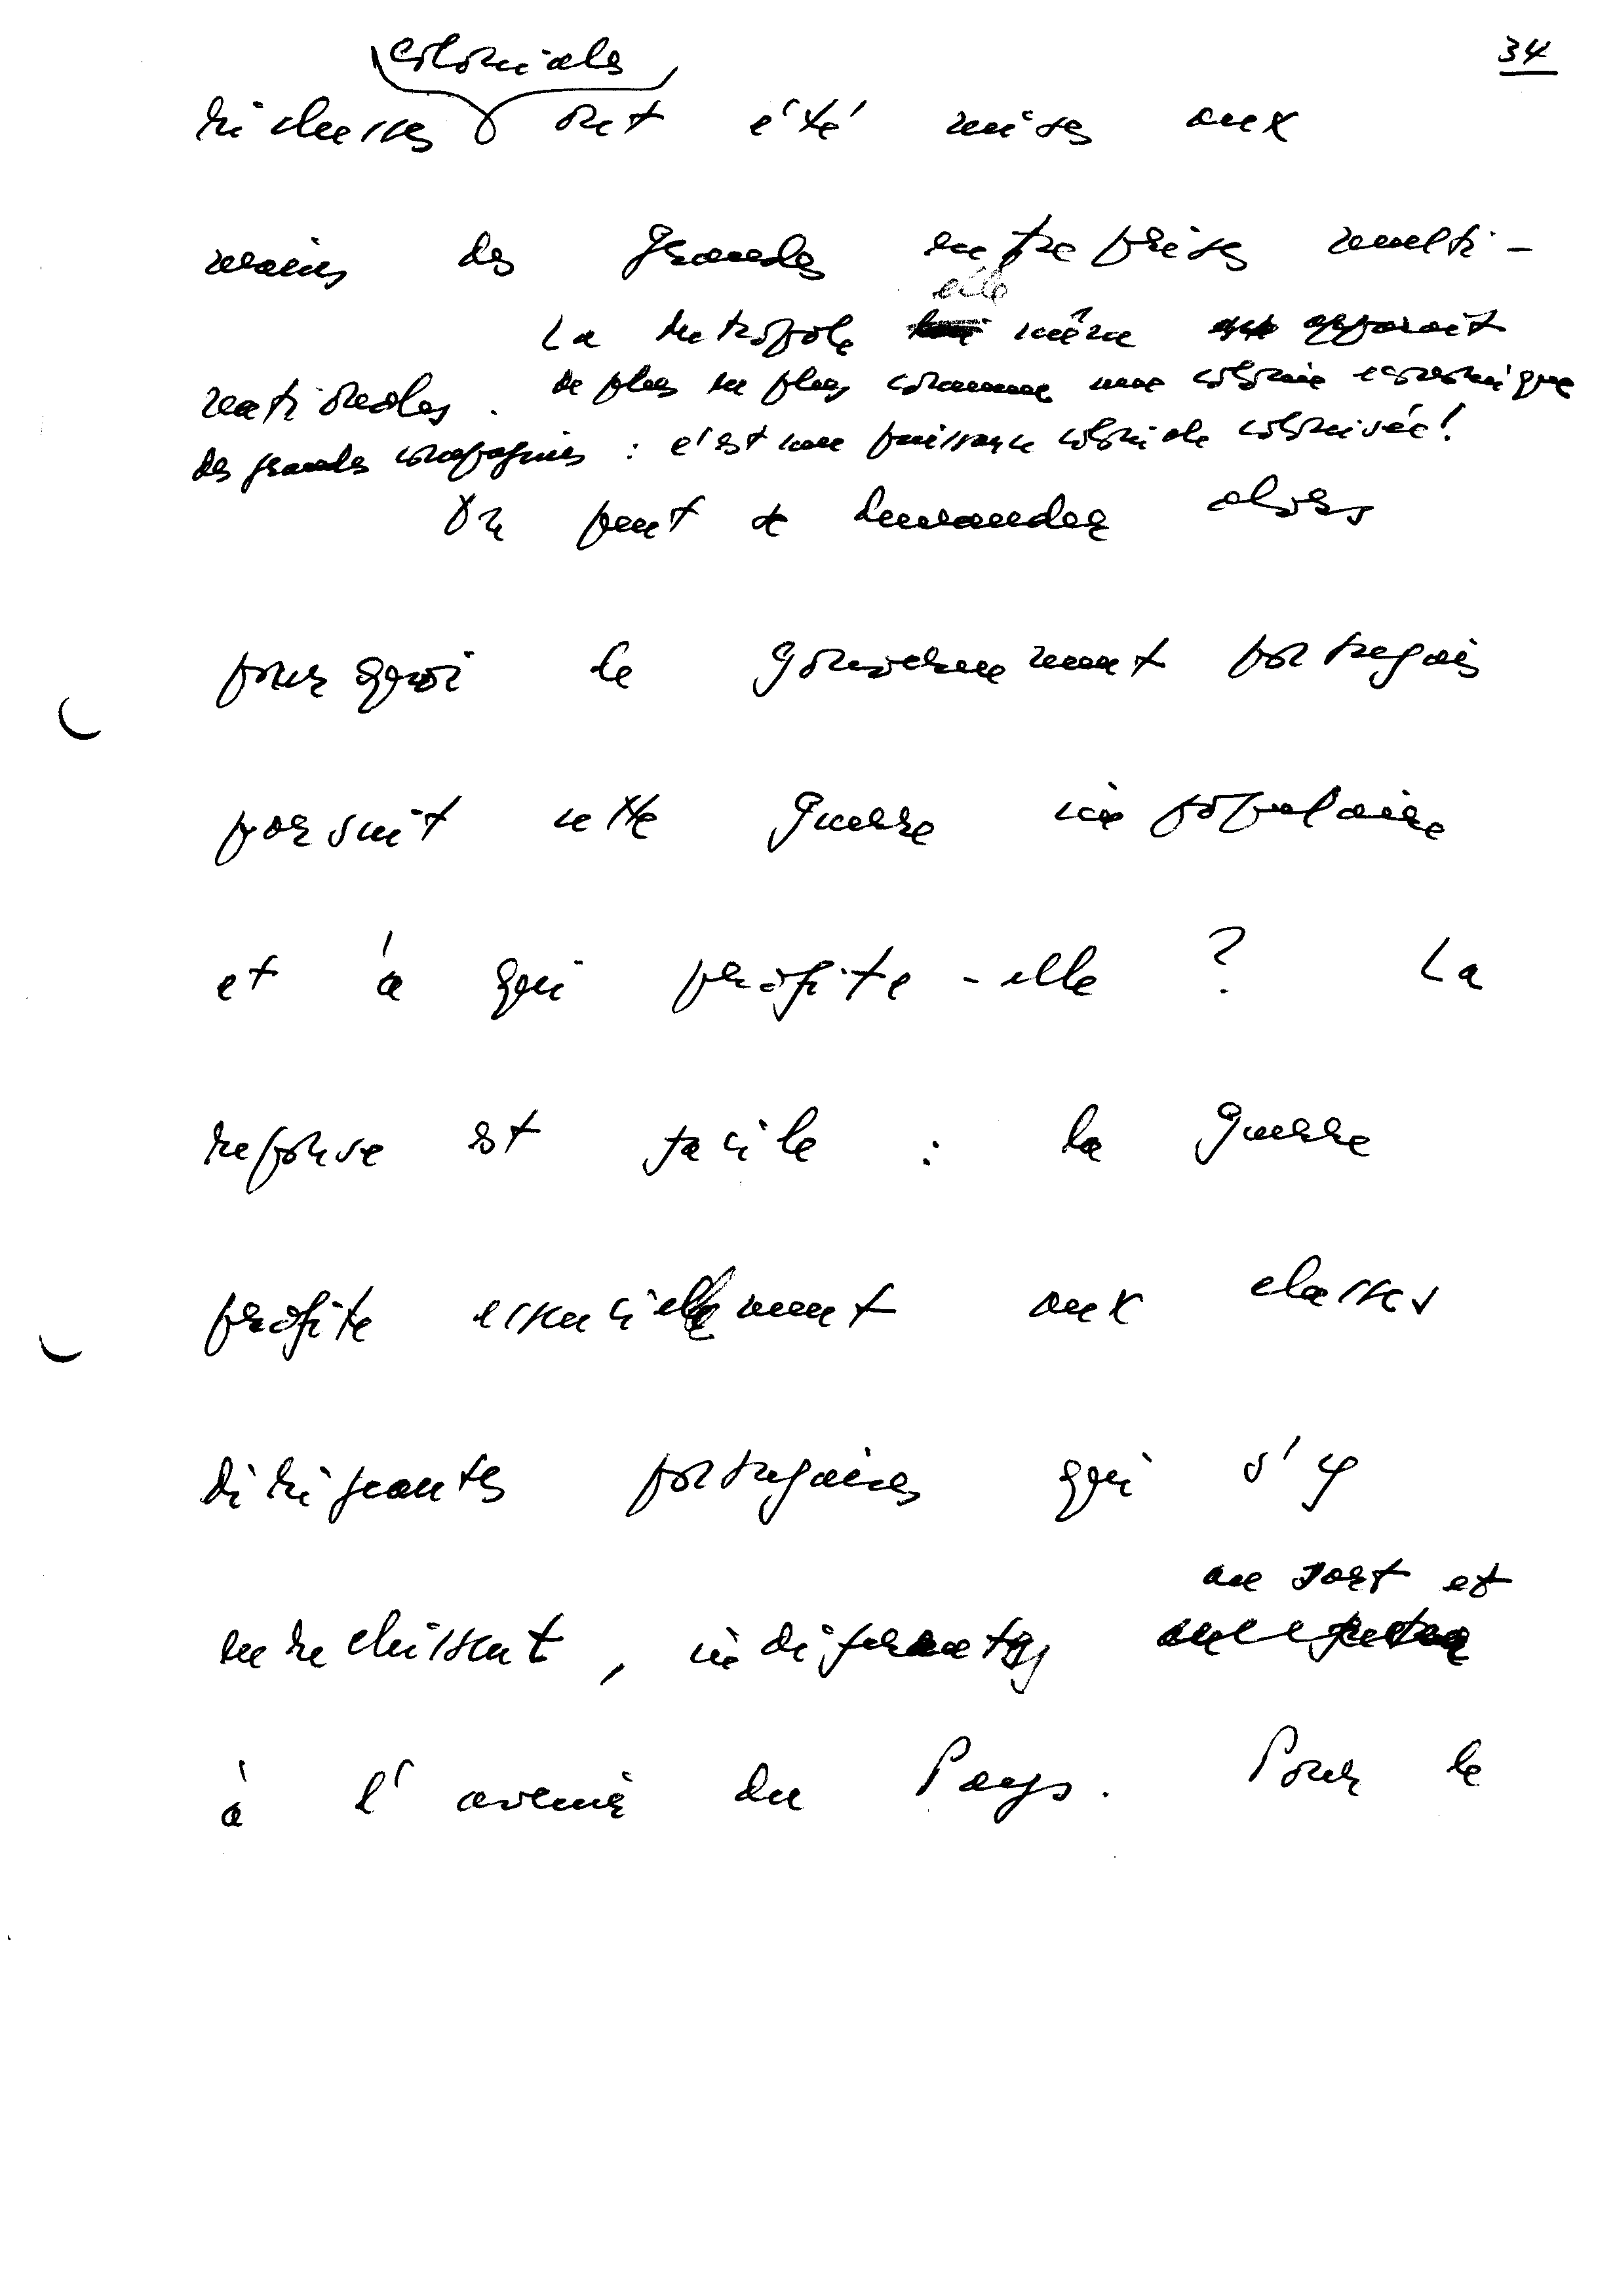 34
coloniales
richesses ont été mises aux
mains des grandes entreprises multi-
elle
La metropole même apparait
nationales. de plus en plus comme une colonie economique
des grandes compagnies : c'est une puissance coloniale colonisée!
On peut se demander alors
pourquoi le gouvernement portugais
porsuit cette guerre inpopulaire
et à qui profite-elle ? La
reponse est facile : la guerre
profite essenciellement aux classes
dirigeantes portugaises qui s'y
au sort et
enrechissent, indiferentes
à l'avenir du Pays. Pour le